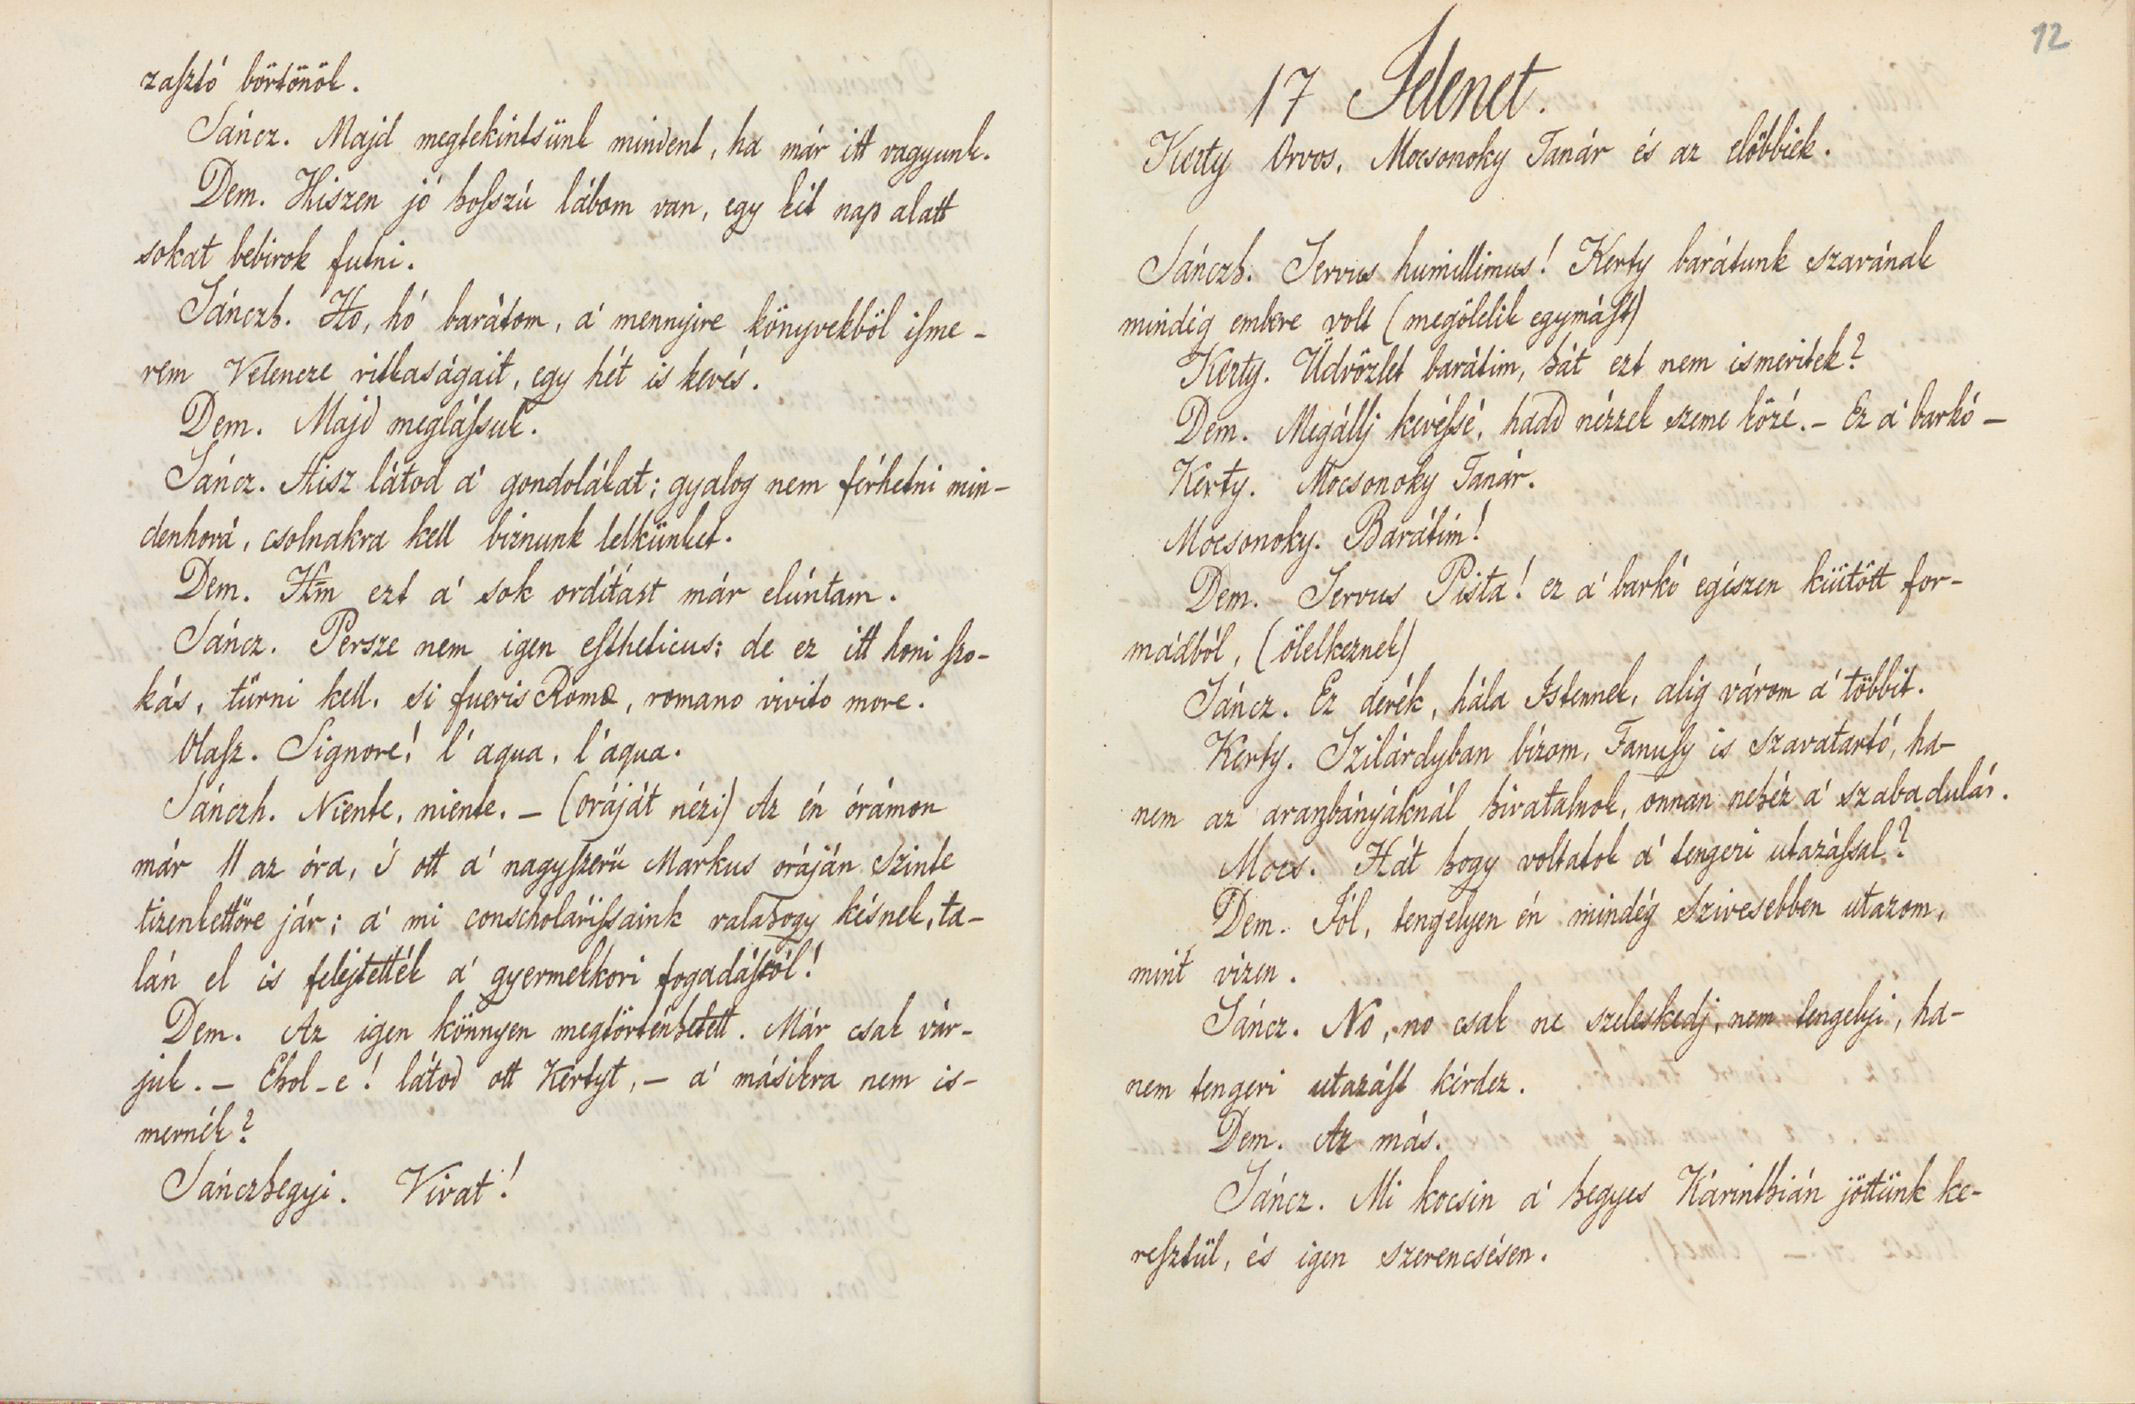 zasztó börtönök.
Sáncz. Majd megtekintsünk mindent, ha már itt vagyunk.
Dem. Hiszen jó hosszú lábom van, egy két nap alatt
sokat bebirok futni.
Sánczh. Ho, hó barátom, a' mennyire könyvekből isme-
rem Velencze ritkaságait, egy hét is kevés.
Dem. Majd meglássuk.
Sáncz. Hisz látod a' gondolákat; gyalog nem férhetni min-
denhová, csolnakra kell biznunk lelkünket.
Dem. Hm ezt a' sok ordítást már elúntam.
Sáncz. Persze nem igen estheticus; de ez itt honi szo-
kás, türni kell, si fueris Romæ, romano vivito more.
Olasz. Signore! l'aqua, l'aqua.
Sánczh. Niente, niente. – (oráját nézi) Az én órámon
már 11 az óra, 's ott a' nagyszerü Markus oráján szinte
tizenkettőre jár; a' mi conscholarissaink valahogy késnek, ta-
lán el is felejtették a' gyermekkori fogadásról!
Dem. Az igen könnyen megtörténhetett. Már csak vár-
juk. – Ehol-e! látod ott Kertyt, – a' másikra nem is-
mernék?
Sánczhegyi. Vivat!
12
17 Jelenet.
Kerty Orvos, Mocsonoky Tanár és az előbbiek.
Sánczh. Servus humillimus! Kerty barátunk szavának
mindég embere volt (megölelik egymást)
Kerty. Üdvözlet barátim, hát ezt nem ismeritek?
Dem. Megállj kevéssé, hadd nézzek szeme közé. – Ez a' barkó –
Kerty. Mocsonoky Tanár.
Mocsonoky. Barátim!
Dem. Servus Pista! ez a' barkó egészen kiütött for-
mádból, (ölelkeznek)
Sáncz. Ez derék, hála Istennek, alig várom a' többit.
Kerty. Szilárdyban bízom, Fanusy is szavatartó, ha-
nem az aranybányáknál hivatalnok, onnan nehéz a' szabadulás.
Mocs. Hát hogy voltatok a' tengeri utazással?
Dem. Jól, tengelyen én mindég szivesebben utazom,
mint vizen.
Sáncz. No, no csak ne szeleskedj, nem tengelyi, ha-
nem tengeri utazást kérdez.
Dem. Az más.
Sáncz. Mi kocsin a' hegyes Kárinthián jöttünk ke-
resztül, és igen szerencsésen.